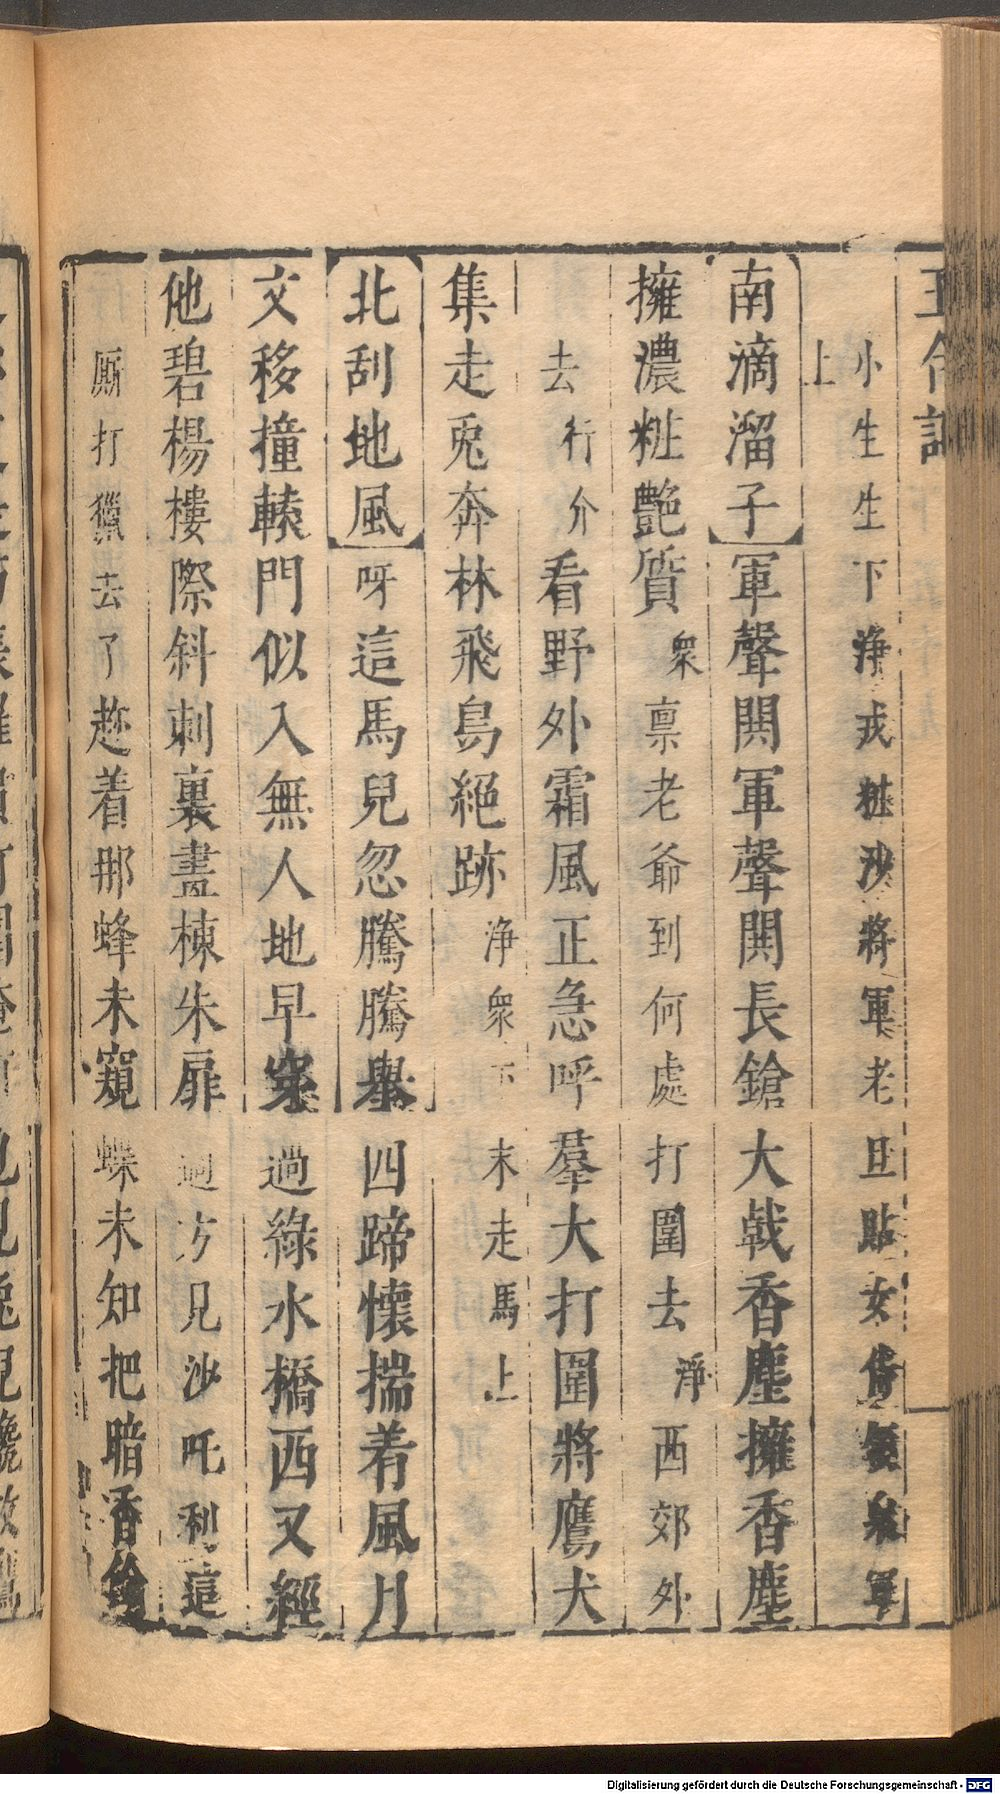 小生生下淨戎粧沙將軍老旦貼女
上
南滴溜子軍聲閧軍聲閧長鎗大戟香塵擁香塵
擁濃粧艷質衆禀老爺到何處打圍去淨西郊外
去行介看野外霜風正急呼羣大打圍將鷹犬
集走兎奔林飛鳥絕跡淨衆下末走馬上
北刮地風呀這馬兒忽騰騰舉四蹄懷揣着風月
文移撞轅門似入無人地早穿過綠水橋西又經
他碧楊樓際斜刺裏盡棟朱扉過方見沙吒利這
廝打獵去了趂着那蜂未窺蝶未知把暗香
Digitalisierung gefördert durch die Deutsche Forschungsgemeinschaft - DFG